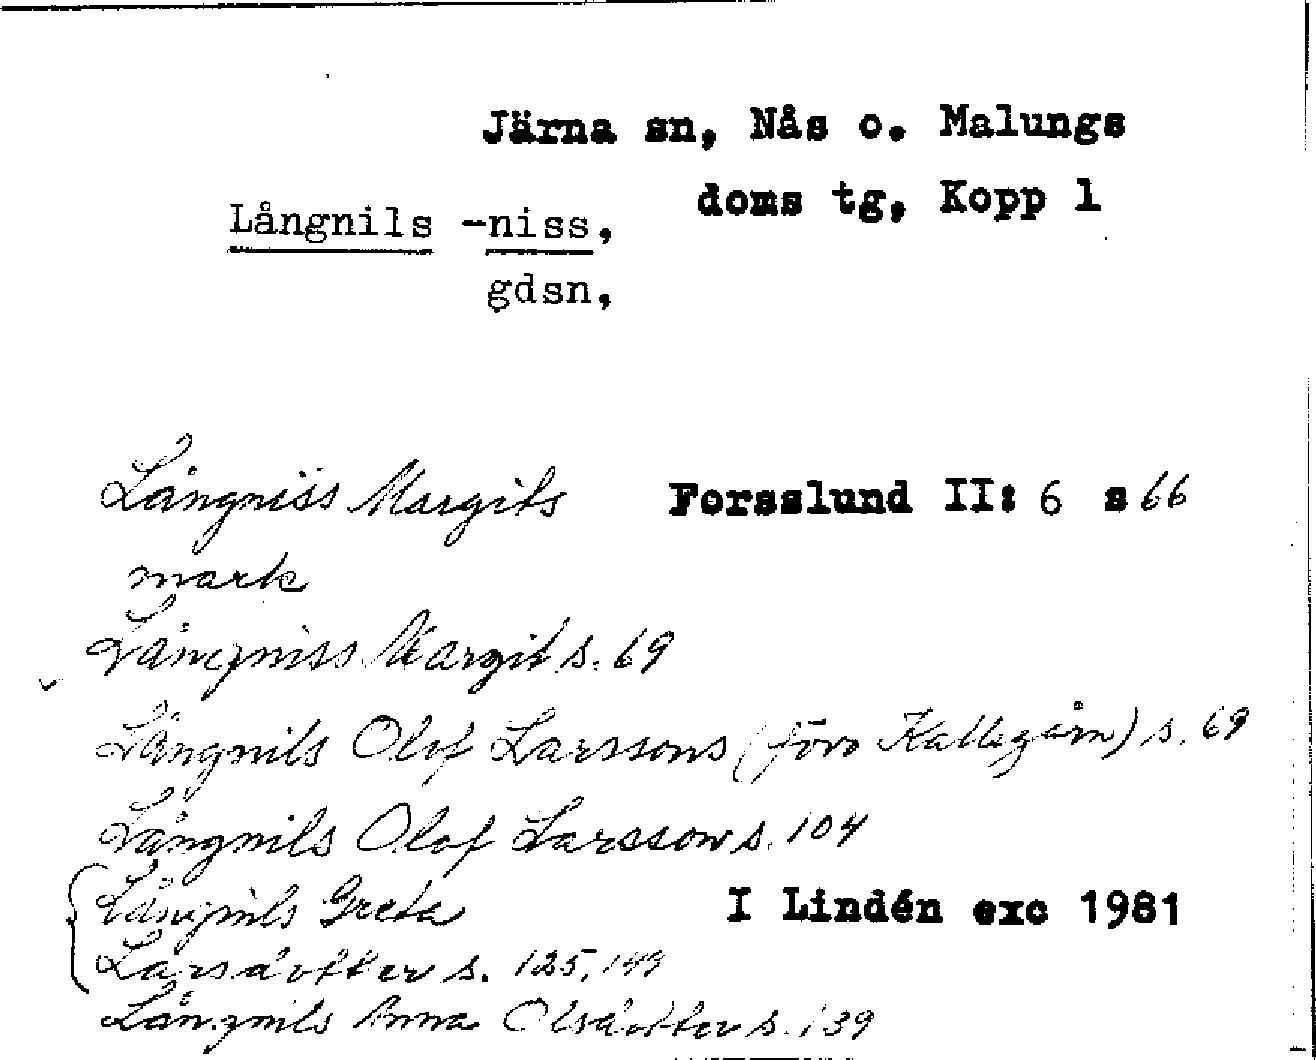 Järna sn, Nås o. Malungs
doms tg, Kopp l
Långnils -niss,
gdsn,
Långniss Margits Forsslund II: 6 s 66
mark
Långniss Margit s. 69
Långnils Olof Larssons (föro Kallsgårn) s. 69
Långnils Olof Larsson s. 104
Långnils Greta I Lindén exc 1981
Larsdotter s. 125, 149
Långnils Anna Olsdotter s. 139